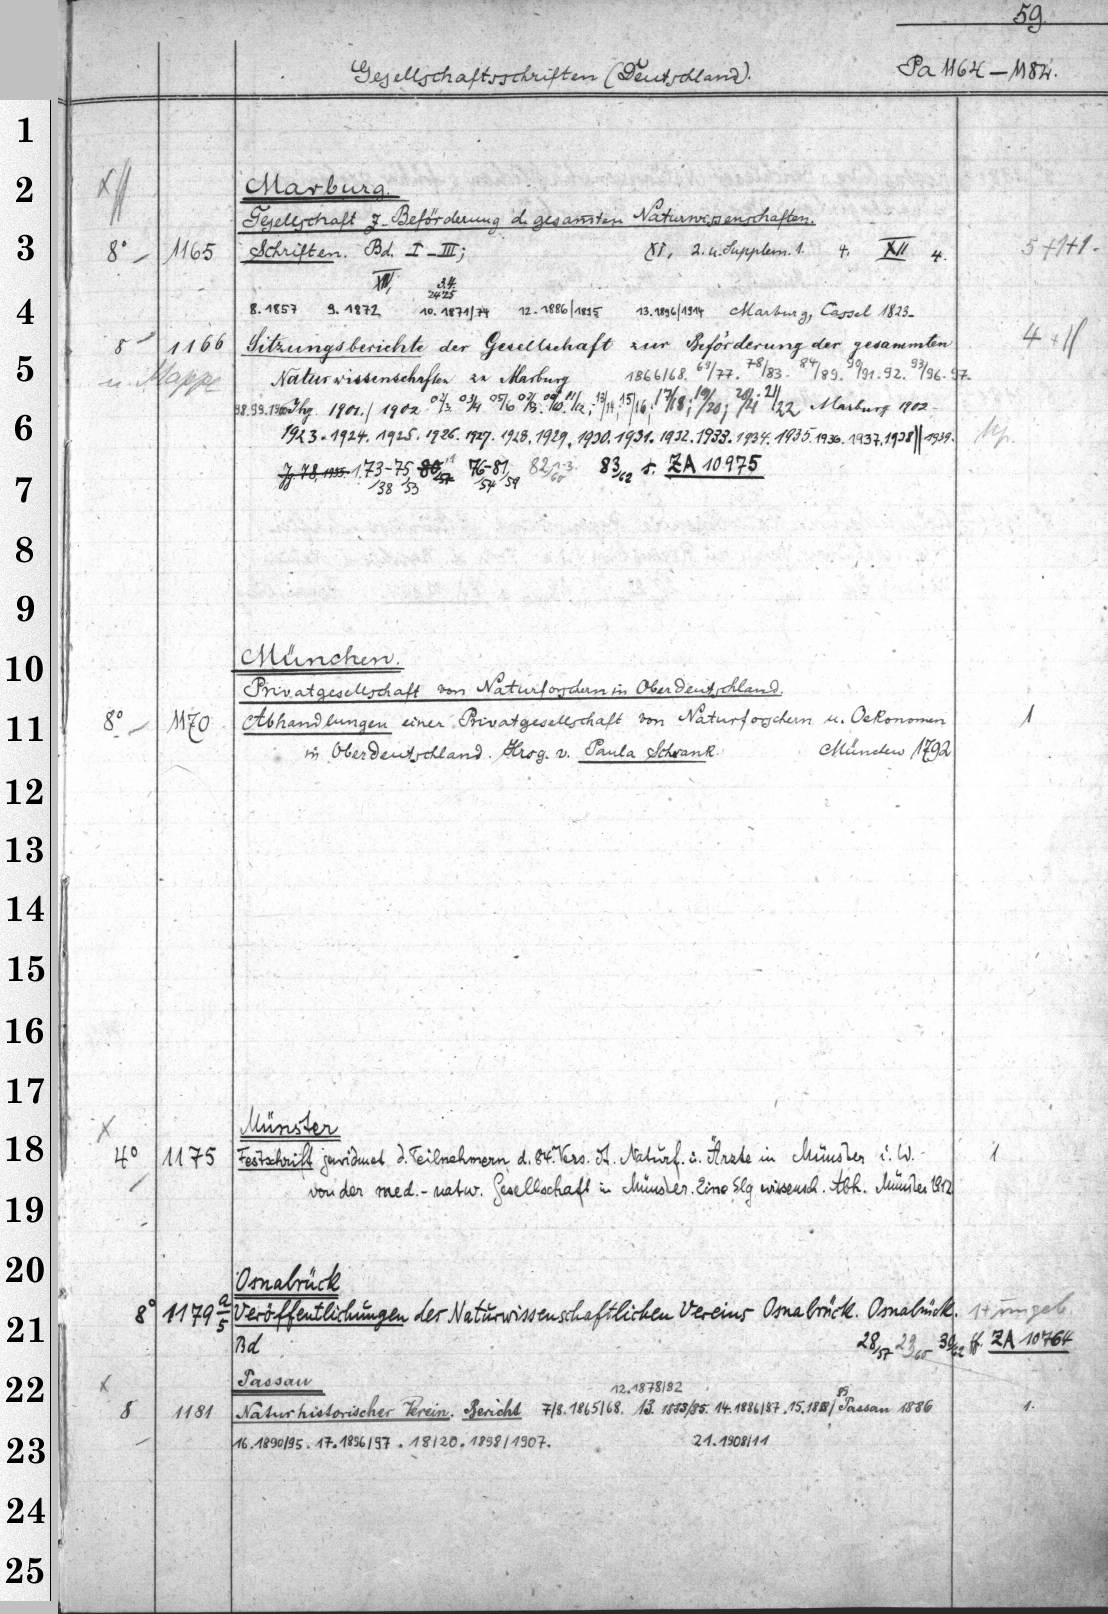 59.
Gesellschaftsschriften (Deutschland). Pa 1164–1184.
1
2 Marburg.
Gesellschaft z. Beförderung d. gesamten Naturwissenschaften.
3 8° – 1165 Schriften. Bd. I–III; XI, 2. u. Supplem. 1. 4. XII 4. 5+1+1.
XIII, 3.4. 24 25
4 8.1857 9.1872 10.1871/74 12.1886/1895 13.1896/1914 Marburg, Cassel 1823–
8° 1166 Sitzungsberichte der Gesellschaft zur Beförderung der gesammten 4
5 u. Mappe Naturwissenschaften zu Marburg 1866/68. 69/77. 78/83. 84/89. 90/91.92. 93/96. 97.
98.99.1900 Jhg. 1901/1902 02/3 03/4 05/6 07/8 11/12, 13/14, 15/16, 17/18, 19/20, 20/21 21/22 Marburg 1902–
6 1923. 1924. 1925. 1926. 1927. 1928. 1929. 1930. 1931. 1932. 1933. 1934. 1935. 1936. 1937. 1938 || 1939.
7 Jg. 78, 1935. 73–75 /38 /53 80/57 76–81 /54 /59 82,1-3/60 83/62 s. ZA 10975
8
9
10 München.
Privatgesellschaft von Naturforschern in Oberdeutschland.
11 8° – 1170 Abhandlungen einer Privatgesellschaft von Naturforschern u. Oekonomen 1
in Oberdeutschland. Hrsg. v. Paula Schrank. München 1792
12
13
14
15
16
17
Münster
18 4° 1175 Festschrift gewidmet d. Teilnehmern d. 84. Vers. dt. Naturf. u. Ärzte in Münster i. W. 1
von der med.-natw. Gesellschaft in Münster. Eine Slg wissensch. Abh. Münster 1912
19
20 Osnabrück
21 8° 1179 a/5 Veröffentlichungen des Naturwissenschaftlichen Vereins Osnabrück. Osnabrück. 1+ungeb.
Bd 28/57 29/60 30/62 ff. ZA 10764
22 Passau
12.1878/82
8 1181 Naturhistorischer Verein. Bericht 7/8.1865/68. 13. 1883/85. 14.1886/87. 15.1888/89 Passau 1886 1.
23 16.1890/95. 17.1896/97. 18/20. 1898/1907. 21.1908/11
24
25